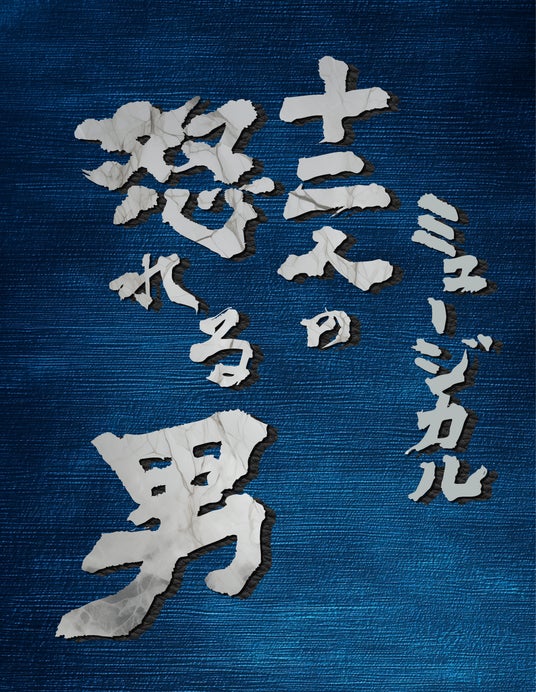 ミュージカル
十二人の
恐れる男